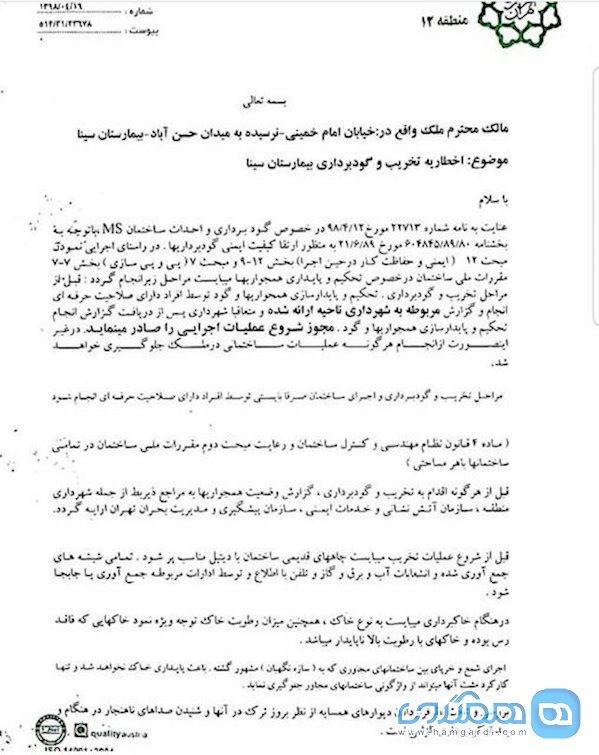 ۱۳۹۸/۰۴/۱۶
شماره : ۵۱۲/۳۱/۲۳۶۷۸
پیوست :
منطقه ۱۲
بسمه تعالی
مالک محترم ملک واقع در:خیابان امام خمینی-نرسیده به میدان حسن آباد-بیمارستان سینا
موضوع: اخطاریه تخریب و گودبرداری بیمارستان سینا
با سلام
عنایت به نامه شماره ۲۲۷۱۳ مورخ ۹۸/۴/۱۲ در خصوص گود برداری و احداث ساختمان MS ،باتوجه به
بخشنامه ۶۰۴۸۴۵/۸۹/۸۰ مورخ ۲۱/۶/۸۹ به منظور ارتقا کیفیت ایمنی گودبرداریها . در راستای اجرایی نمودن
مبحث ۱۲ ( ایمنی و حفاظت کار درحین اجرا) بخش ۱۲-۹ و مبحث ۷ ( پی و پی سازی ) بخش ۷-۷
مقررات ملی ساختمان درخصوص تحکیم و پایداری همجواریها میبایست مراحل زیرانجام گردد : قبل از
مراحل تخریب و گودبرداری . تحکیم و پایدارسازی همجواریها و گود توسط افراد دارای صلاحیت حرفه ای
انجام و گزارش مربوطه به شهرداری ناحیه ارائه شده و متعاقبا شهرداری پس از دریافت گزارش انجام
تحکیم و پایدارسازی همجواریها و گود . مجوز شروع عملیات اجرایی را صادر مینماید. درغیر
اینصورت ازانجام هرگونه عملیات ساختمانی درملک جلوگیری خواهد
شد.
مراحل تخریب و گودبرداری و اجرای ساختمان صرفا بایستی توسط افراد دارای صلاحیت حرفه ای انجام شود
( ماده ۴ قانون نظام مهندسی و کنترل ساختمان و رعایت مبحث دوم مقررات ملی ساختمان در تمامی
ساختمانها باهر مساحتی )
قبل از هرگونه اقدام به تخریب و گودبرداری ، گزارش وضعیت همجواریها به مراجع ذیربط از جمله شهرداری
منطقه ، سازمان آتش نشانی و خدمات ایمنی ، سازمان پیشگیری و مدیریت بحران تهران ارایه گردد.
قبل از شروع عملیات تخریب میبایست چاههای قدیمی ساختمان با دیتیل مناسب پر شود . تمامی شیشه های
جمع آوری شده و انشعابات آب و برق و گاز و تلفن با اطلاع و توسط ادارات مربوطه جمع آوری یا جابجا
شود .
درهنگام خاکبرداری میبایست به نوع خاک ، همچنین میزان رطوبت خاک توجه ویژه نمود خاکهایی که فاقد
رس بوده و خاکهای با رطوبت بالا ناپایدار میباشد .
اجرای شمع و خرپای بین ساختمانهای مجاوری که به ( سازه نگهبان ) مشهور گشته . باعث پایداری خاک نخواهد شد و تنها
کارکرد مثبت آنها میتواند از واژگونی ساختمانهای مجاور جلوگیری نماید .
دیوارهای همسایه از نظر بروز ترک در آنها و شنیدن صداهای ناهنجار در هنگام و
qualityaustria
ISO 14001:2004
همگردی
www.hamgardi.com